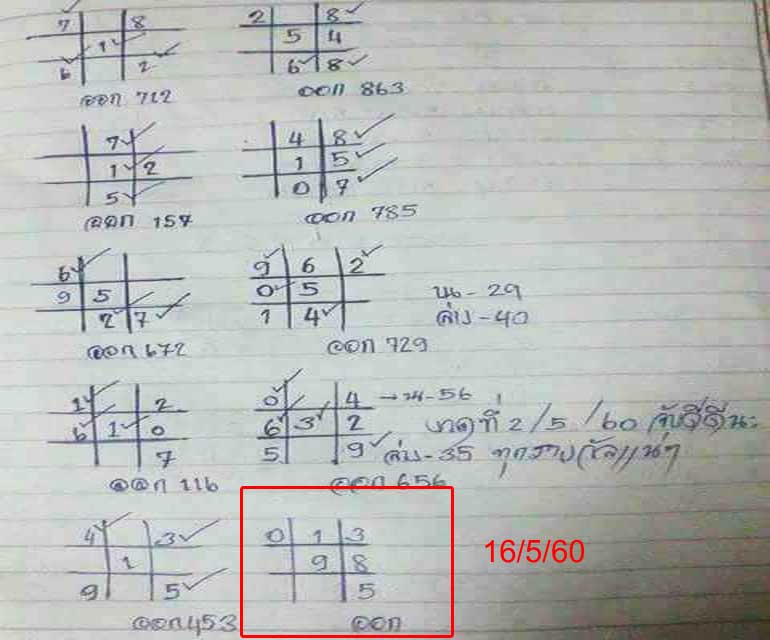 7 8
1
6 2
ออก 712
2 8
5 4
6 8
ออก 863
7
1 2
5
ออก 157
4 8
1 5
0 7
ออก 785
6
9 5
2 7
ออก 672
9 6 2
0 5
1 4
ออก 729
บน - 29
ล่าง - 40
1 2
6 1 0
7
ออก 116
0 4 → บน - 56
6 3 2
5 9 ล่าง - 35
ออก 656
งวดที่ 2/5/60
ทุกราง
4 3
1
9 5
ออก 453
0 1 3
9 8
5
ออก
16/5/60